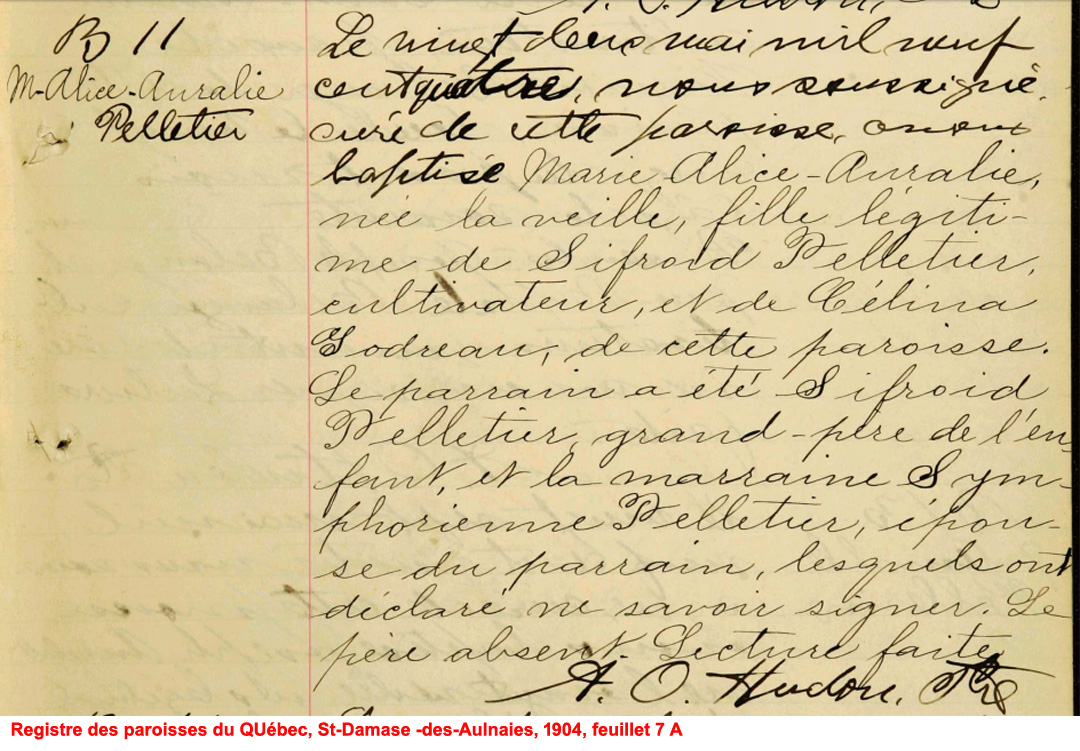 B 11
M-Alice-Auralie
Pelletier
Le vingt deux mai mil neuf
cent quatre, nous soussigné,
curé de cette paroisse, avons
baptisé Marie Alice-Auralie,
née la veille, fille légiti-
me de Sifroid Pelletier,
cultivateur, et de Célina
Godreau, de cette paroisse.
Le parrain a été Sifroid
Pelletier, grand-père de l'en-
fant, et la marraine Sym-
phorienne Pelletier, épou-
se du parrain, lesquels ont
déclaré ne savoir signer. Le
père absent. Lecture faite
A. O. Hudon, Ptre
Registre des paroisses du QUébec, St-Damase -des-Aulnaies, 1904, feuillet 7 A